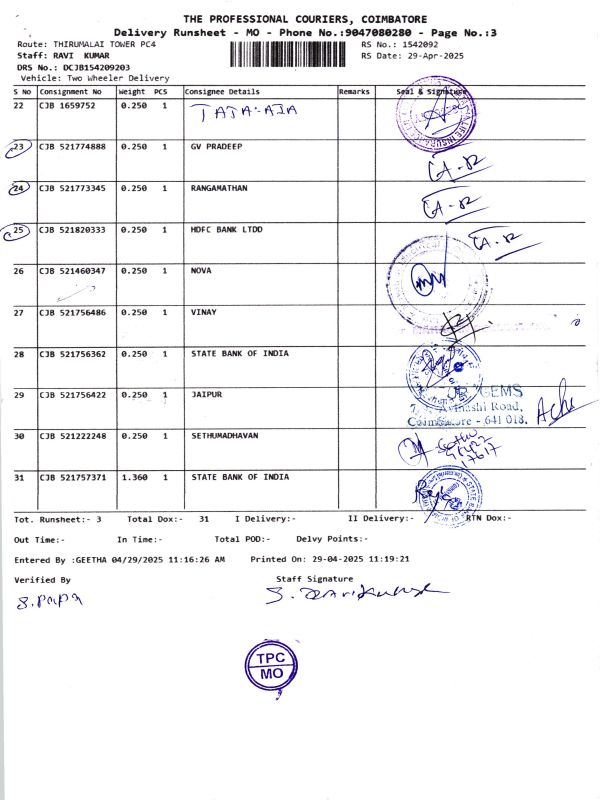 THE PROFESSIONAL COURIERS, COIMBATORE
Delivery Runsheet - MO - Phone No.:9047080280 - Page No.:3
Route: THIRUMALAI TOWER PC4 RS No.: 1542092
Staff: RAVI KUMAR RS Date: 29-Apr-2025
DRS No.: DCJB154209203
Vehicle: Two Wheeler Delivery
S No Consignment No Weight PCS Consignee Details Remarks Seal & Signature
22 CJB 1659752 0.250 1 TATA-AIA
23 CJB 521774888 0.250 1 GV PRADEEP
24 CJB 521773345 0.250 1 RANGAMATHAN
25 CJB 521820333 0.250 1 HDFC BANK LTDD
26 CJB 521460347 0.250 1 NOVA
27 CJB 521756486 0.250 1 VINAY
28 CJB 521756362 0.250 1 STATE BANK OF INDIA
29 CJB 521756422 0.250 1 JAIPUR GEMS
Avinashi Road,
Coimbatore - 641 018.
30 CJB 521222248 0.250 1 SETHUMADHAVAN
31 CJB 521757371 1.360 1 STATE BANK OF INDIA
Tot. Runsheet:- 3 Total Dox:- 31 I Delivery:- II Delivery:- RTN Dox:-
Out Time:- In Time:- Total POD:- Delvy Points:-
Entered By :GEETHA 04/29/2025 11:16:26 AM Printed On: 29-04-2025 11:19:21
Verified By Staff Signature
TPC
MO